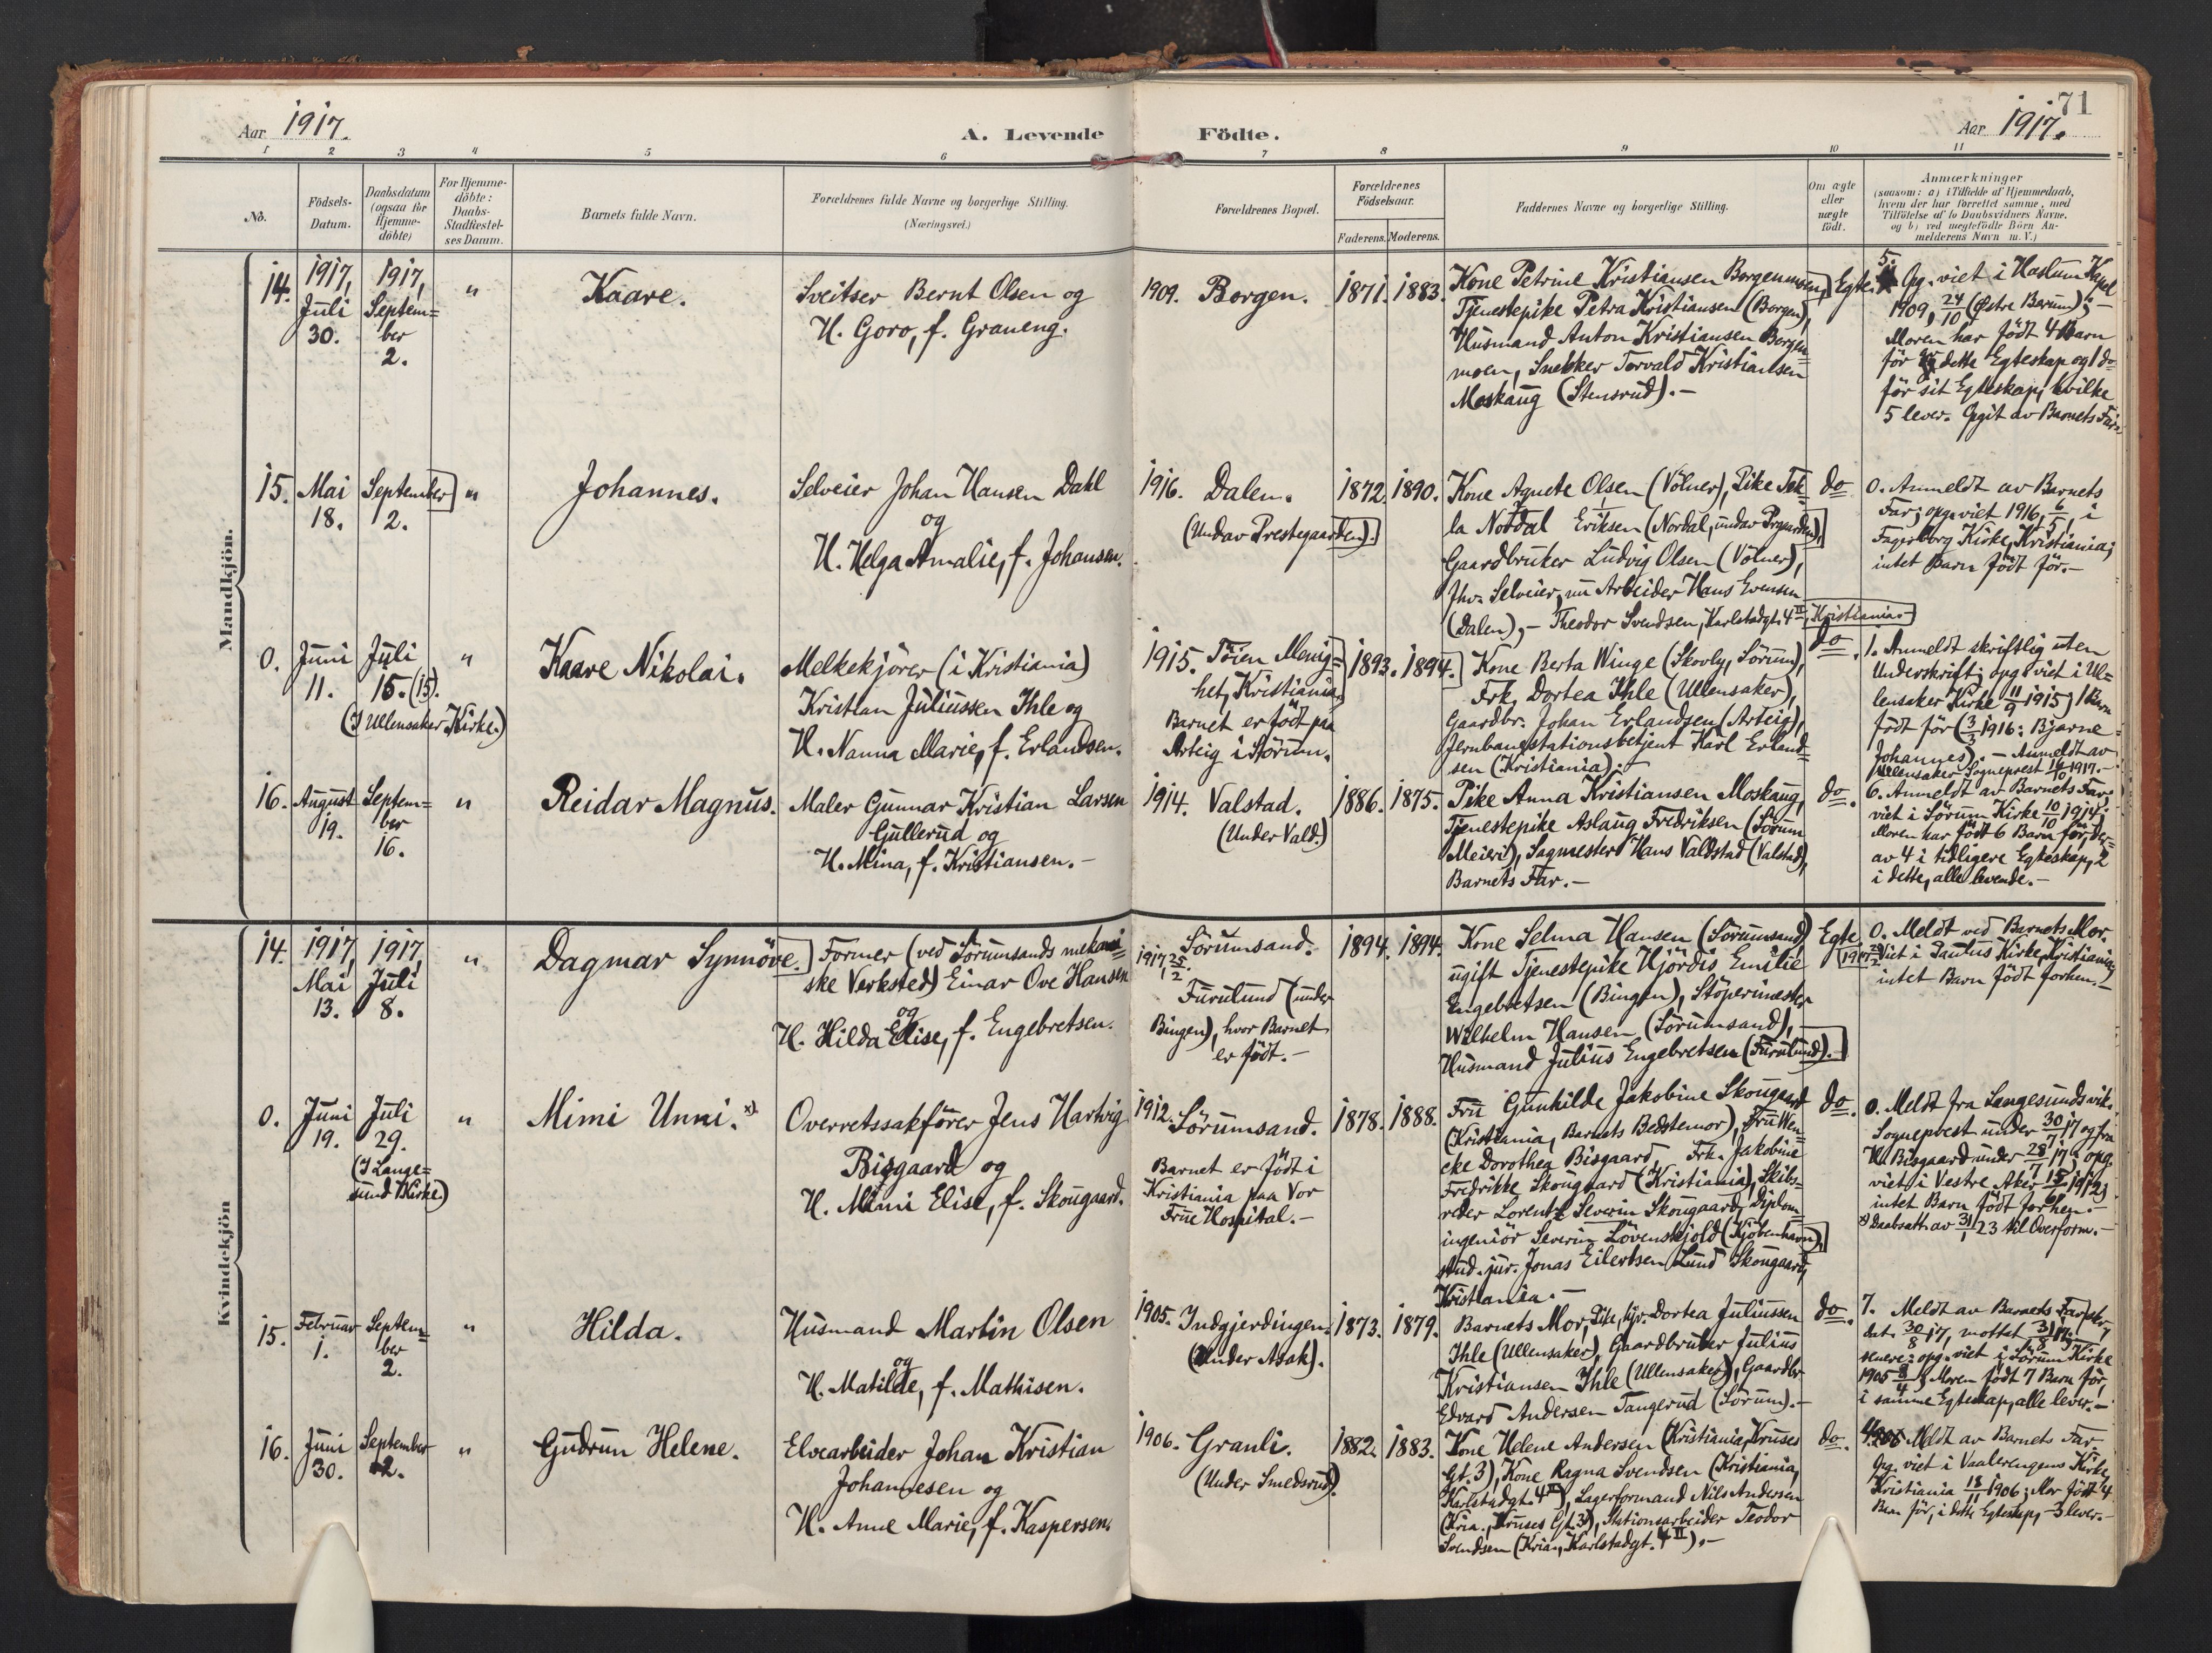 71
Aar 1917.
A. Levende Födte.
Aar 1917.
1 2 3 4 5 6 7 8 9 10 11
No.
Födsels-
Datum.
Daabsdatum
(ogsaa for
Hjemme-
döbte)
For Hjemme-
döbte:
Daabs-
Stadfæstel-
ses Datum.
Barnets fulde Navn.
Forældrenes fulde Navne og borgerlige Stilling.
(Næringsvei.)
Forældrenes Bopæl.
Forældrenes
Födselsaar.
Faderens. Moderens.
Faddernes Navne og borgerlige Stilling.
Om ægte
eller
uægte
födt.
Anmærkninger
(saasom: a) i Tilfælde af Hjemmedaab,
hvem der har forrettet samme, med
Tilföielse af to Daabsvidners Navne.
og b) ved uægtefödte Börn An-
melderens Navn m. V.)
Mandkjön.
14.
1917,
Juli
30.
1917,
Septem=
ber
2.
"
Kaare.
Sveitser Bernt Olsen og
H. Goro, f. Graneng.
1909. Borgen.
1871. 1883.
Kone Petrine Kristiansen Borgenmoen,
Tjenestepike Petra Kristiansen (Borgen),
Husmand Anton Kristiansen Borgen=
moen, Snekker Torvald Kristiansen
Moskaug (Stensrud).-
Egte.
5.
Og. viet i Haslum Kapel
1909, 24/10 (Østre Bærum);-
Moren har födt 4 Barn
för i dette Egteskap og 1 do
för sit Egteskap, hvilke
5 lever. Opgit av Barnets Far.
15.
Mai
18.
September
2.
"
Johannes.
Selveier Johan Hansen Dahl
og
H. Helga Amalie, f. Johansen.
1916. Dalen.
(Undav Prestegaarden).
1872. 1890.
Kone Agnete Olsen (Völner), Pike Tek=
la Nordal Eriksen (Nordal, undav Prgaarden),
Gaardbruker Ludvig Olsen (Völner),
fhv. Selveier, nu Arbeider Hans Evensen
(Dalen),- Theodor Svendsen, Karlstadgt. 4 II, Kristiania.-
do
0. Anmeldt av Barnets
Far; opg. viet 1916, 6/5, i
Fagerborg Kirke, Kristiania;
intet Barn födt för.-
0.
Juni
11.
Juli
15. (15).
(I Ullensaker Kirke.)
"
Kaare Nikolai.
Melkekjörer (i Kristiania)
Kristian Juliussen Ihle og
H. Nanna Marie, f. Erlandsen.
1915. Töien Menig=
het, Kristiania.
Barnet er födt paa
Arteig i Sörum.
1893. 1894.
Kone Berta Winge (Skovly, Sörum),
Frk. Dortea Ihle (Ullensaker),
Gaardbr. Johan Erlandsen (Arteig),
Jernbanestationsbetjent Karl Erland=
sen (Kristiania).-
do.
1. Anmeldt skriftlig uten
Underskrift; opg. viet i Ul=
lensaker Kirke 11/9 1915; 1 Barn
födt för (3/3 1916: Bjarne
Johannes).- Anmeldt av
Ullensaker Sogneprest 16/10 1917.-
16.
August
19.
Septem=
ber
16.
"
Reidar Magnus.
Maler Gunnar Kristian Larsen
Gullerud og
H. Mina, f. Kristiansen.-
1914. Valstad.
(Under Vald.)
1886. 1875.
Pike Anna Kristiansen Moskaug,
Tjenestepike Aslaug Fredriksen (Sörum
Meieri), Sagmester Hans Valdstad (Valstad),
Barnets Far.-
do.
6. Anmeldt av Barnets Far;
viet i Sörum Kirke 10/10 1914;
Moren har födt 6 Barn för, der=
av 4 i tidligere Egteskap, 2
i dette, alle levende.-
Kvindekjön
14.
1917,
Mai
13.
1917,
Juli
8.
"
Dagmar Synnöve.
Former (ved Sörumsands mekani=
ske Verksted) Einar Ove Hansen
og
H. Hilda Elise, f. Engebretsen.
1917 25/2.
Sörumsand.
Furulund (under
Bingen), hvor Barnet
er födt.-
1894. 1894.
Kone Selma Hansen (Sörumsand)
ugift Tjenestepike Hjördis Emilie
Engebretsen (Bingen), Stöperimester
Wilhelm Hansen (Sörumsand),
Husmand Julius Engebretsen (Furulund).-
Egte.
0. Meldt ved Barnets Mor.
1917 25/2 Viet i Paulus Kirke, Kristiania;
intet Barn födt forhen.-
0.
Juni
19.
Juli
29.
(I Lange=
sund Kirke.)
"
Mimi Unni. x)
Overretssakförer Jens Hartvig
Bisgaard og
H. Mimi Elise, f. Skougaard.
1912. Sörumsand.
Barnet er födt i
Kristiania paa Vor
Frue Hospital.-
1878. 1888.
Fru Gunhilde Jakobine Skougaard
(Kristiania, Barnets Bedstemor), Fru Wen=
cke Dorothea Bisgaard, Frk. Jakobine
Fredrikke Skougaard (Kristiania), Skibs=
reder Lorentz Severin Skougaard, Diplom=
ingeniör Severin Lövenskjold (Kjöbenhavn),
stud. jur. Jonas Eilertsen Lund Skougaard,
Kristiania.-
do.
0. Meldt fra Langesunds vik.
Sogneprest under 30/7 17 og fra
H. Bisgaard under 28/7 17; opg.
viet i Vestre Aker 15/6 1912;
intet Barn födt forhen.-
x) Daabsatt. av 31/1 23 til Overform.-
15.
Februar
1.
Septem=
ber
2.
"
Hilda.
Husmand Martin Olsen
og
H. Matilde, f. Mathisen.
1905. Indgjerdingen.
(Under Asak).
1873. 1879.
Barnets Mor, Pike, hjv. Dortea Juliussen
Ihle (Ullensaker), Gaardbruker Julius
Kristiansen Ihle (Ullensaker), Gaardbr.
Edvard Andersen Tangerud (Sörum).-
do.
7. Meldt av Barnets Far skr.,
dat. 30/8 17, mottat 31/8 17.
senere: opg. viet i Sörum Kirke
1905 8/4; Moren födt 7 Barn för,
i samme Egteskap, alle lever.-
16.
Juni
30.
September
2.
"
Gudrun Helene.
Elvearbeider Johan Kristian
Johannesen og
H. Anne Marie, f. Kaspersen.
1906. Granli.
(Under Smedsrud).
1882. 1883.
Kone Helene Andersen (Kristiania, Kruses
Gt. 3), Kone Ragna Svendsen (Kristiania,
Karlstadgt. 4 II), Lagerformand Nils Andersen
(Kria., Kruses Gt. 3), Stationsarbeider Teodor
Svendsen (Kria., Karlstadgt. 4 II).-
do.
4. Meldt av Barnets Far.
Opg. viet i Vaalerengens Kirke,
Kristiania 18/11 1906; Mor födt 4
Barn för, i dette Egteskap, 3 lever.-